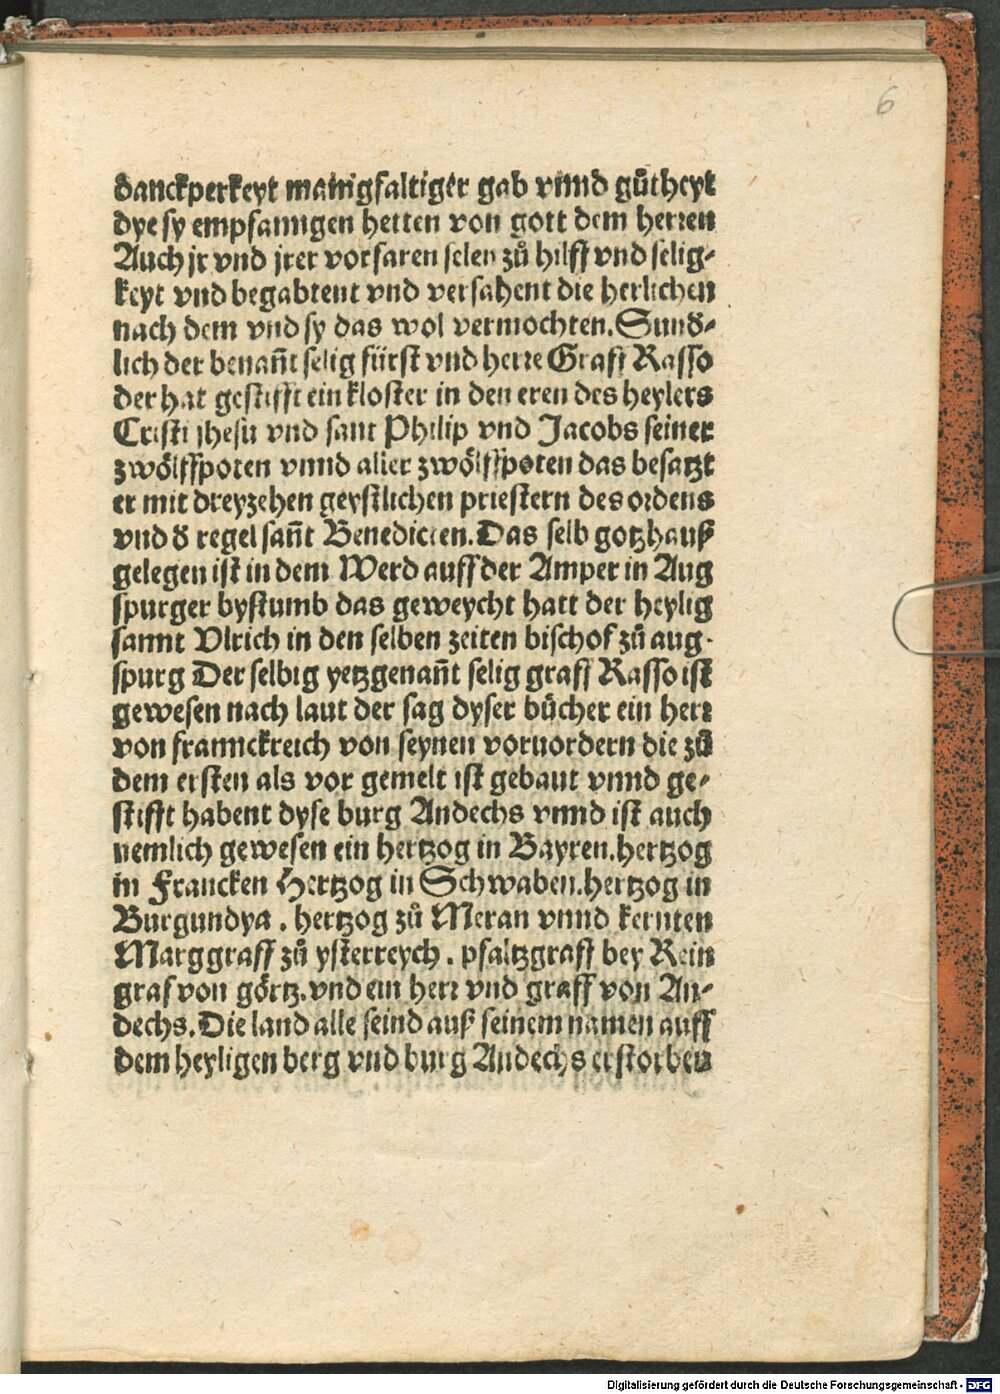 6
danckperkeyt manigfaltiger gab vnnd gůtheyt
dye sy empfanngen hetten von gott dem herren
Auch jr vnd jrer vorfaren selen zů hilff vnd selig-
keyt vnd begabtent vnd versahent die herlichen
nach dem vnd sy das wol vermochten. Sund-
lich der benañt selig fürst vnd herre Graff Rasso
der hat gestifft ein kloster in den eren des heylers
Cristi jhesu vnd sant Philip vnd Jacobs seiner
zwölffpoten vnnd aller zwölffpoten das besatzt
er mit dreyzehen geystlichen priestern des ordens
vnd d̕ regel sañt Benedicten. Das selb gotzhauß
gelegen ist in dem Werd auff der Amper in Aug
spurger bystumb das geweycht hatt der heylig
sannt Vlrich in den selben zeiten bischof zů aug-
spurg Der selbig yetzgenañt selig graff Rasso ist
gewesen nach laut der sag dyser bücher ein herr
von franckreich von seynen voruordern die zů
dem ersten als vor gemelt ist gebaut vnnd ge-
stifft habent dyse burg Andechs vnnd ist auch
nemlich gewesen ein hertzog in Bayren. hertzog
in Francken Hertzog in Schwaben. hertzog in
Burgundya. hertzog zů Meran vnnd kernten
Marggraff zů ysterreych. pfaltzgraff bey Rein
graf von görtz. vnd ein herr vnd graff von An-
dechs. Die land alle seind auß seinem namen auff
dem heyligen berg vnd burg Andechs erstorben
Digitalisierung gefördert durch die Deutsche Forschungsgemeinschaft - DFG